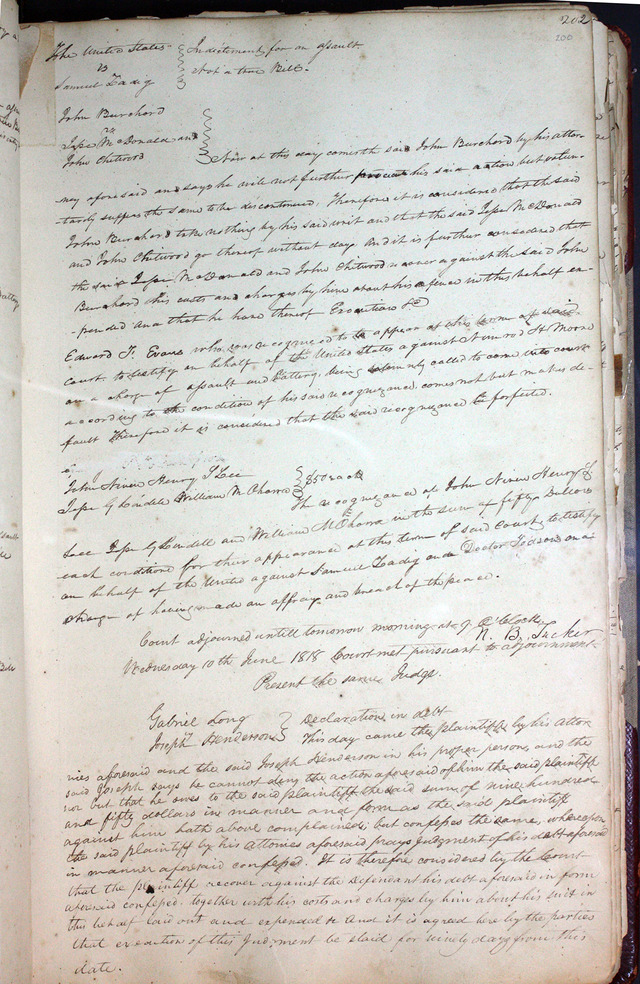 202
200
The United States } Indictment for an assault
vs
Samuel Zadig } Not a true Bill.
John Burchard
vs
Jesse McDonald and
John Chitwood } Now at this day cometh said John Burchard by his attor-
ney aforesaid and says he will not further prosecute his said action but volun-
tarily suffers the same to be discontinued, Therefore it is considered that the said
John Burchard take nothing by his said writ and that the said Jesse McDonald
and John Chitwood go thereof without day. And it is further considered that
the said Jesse McDonald and John Chitwood recover against the said John
Burchard his costs and charges by him about his defence in this behalf ex-
pended and that he have thereof Execution &c
Edward T. Evans who was recognized to appear at this term of said
court to testify on behalf of the United States against Nimrod H Moore
on a charge of assault and battery, being solemnly called to come into court
according to the condition of his said recognizance, comes not but makes de-
fault Therefore it is considered that the said recognizance be forfeited.
John Niven Henry S Lee
Jesse G Lindell William M OHarra } $50 each
The recognizance of John Niven Henry S
Lee Jesse G Lindell and William M OHarra in the sum of fifty Dollars
each conditioned for their appearance at this term of said court, to testify
on behalf of the United against Samuel Zadig and Doctor Todson on a
charge of having made an affray and breach of the peace.
Court adjourned untill tomorrow morning at 9 O'Clock
N. B. Tucker
Wednesday 10th June 1818 Court met pursuant to adjournment
Present the same Judge.
Gabriel Long } Declaration in debt
Joseph Henderson } This day came the plaintiff by his Attor
nies aforesaid and the said Joseph Henderson in his proper person, and the
said Joseph says he cannot deny the action aforesaid of him the said plaintiff
nor but that he owes to the said plaintiff the said sum of nine hundred
and fifty dollars in manner and form as the said plaintiff
against him hath above complained, but confesses the same, whereupon
the said plaintiff by his attornies aforesaid prays Judgment of his debt aforesaid
in manner aforesaid confessed. It is therefore considered by the Court
that the plaintiff recover against the defendant his debt aforesaid in form
aforesaid confessed together with his costs and charges by him about his suit in
this behalf laid out and expended & And it is agreed here by the parties
that execution of this Judgment be staid for ninety days from this
date.